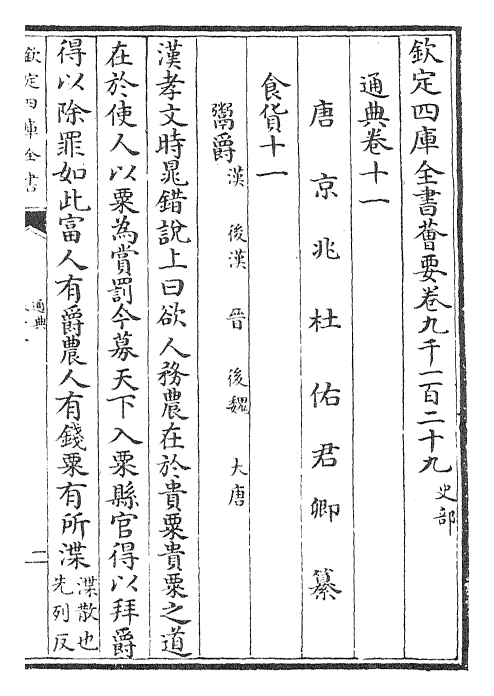 欽定四庫全書薈要卷九千一百二十九 史部
通典卷十一
唐京兆杜佑君卿纂
食貨十一
鬻爵 漢 後漢 晉 後魏 大唐
漢孝文時鼂錯說上曰欲人務農在於貴粟貴粟之道
在於使人以粟為賞罰今募天下入粟縣官得以拜爵
得以除罪如此富人有爵農人有錢粟有所渫 渫散也先列反
欽定四庫全書
通典